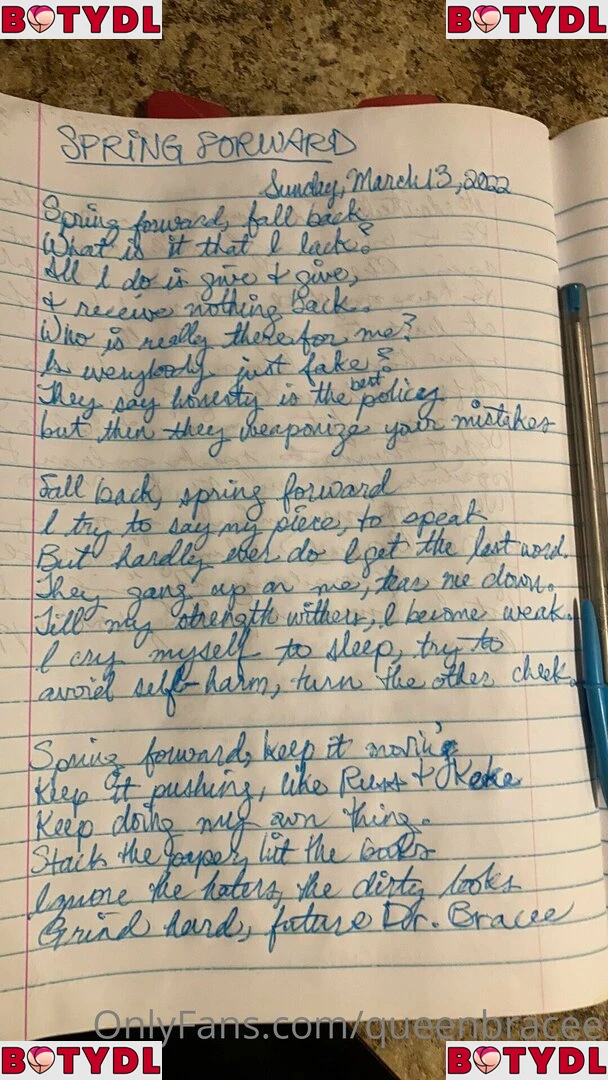 BOTYDL BOTYDL
SPRING FORWARD
Sunday, March 13, 2022
Spring forward, fall back
What is it that I lack?
All I do is give & give,
& receive nothing back.
Who is really there for me?
Is everybody just fake?
They say honesty is the best policy
but then they weaponize your mistakes
Fall back, spring forward
I try to say my piece, to speak
But hardly ever do I get the last word.
They gang up on me, tear me down.
Till my strength withers, I become weak.
I cry myself to sleep, try to
avoid self-harm, turn the other cheek.
Spring forward, keep it movin'
Keep it pushing, like Russ & Keke
Keep doing my own thing.
Stack the paper, hit the books
Ignore the haters, the dirty looks
Grind hard, future Dr. Bracee
OnlyFans.com/queenbracee
BOTYDL BOTYDL